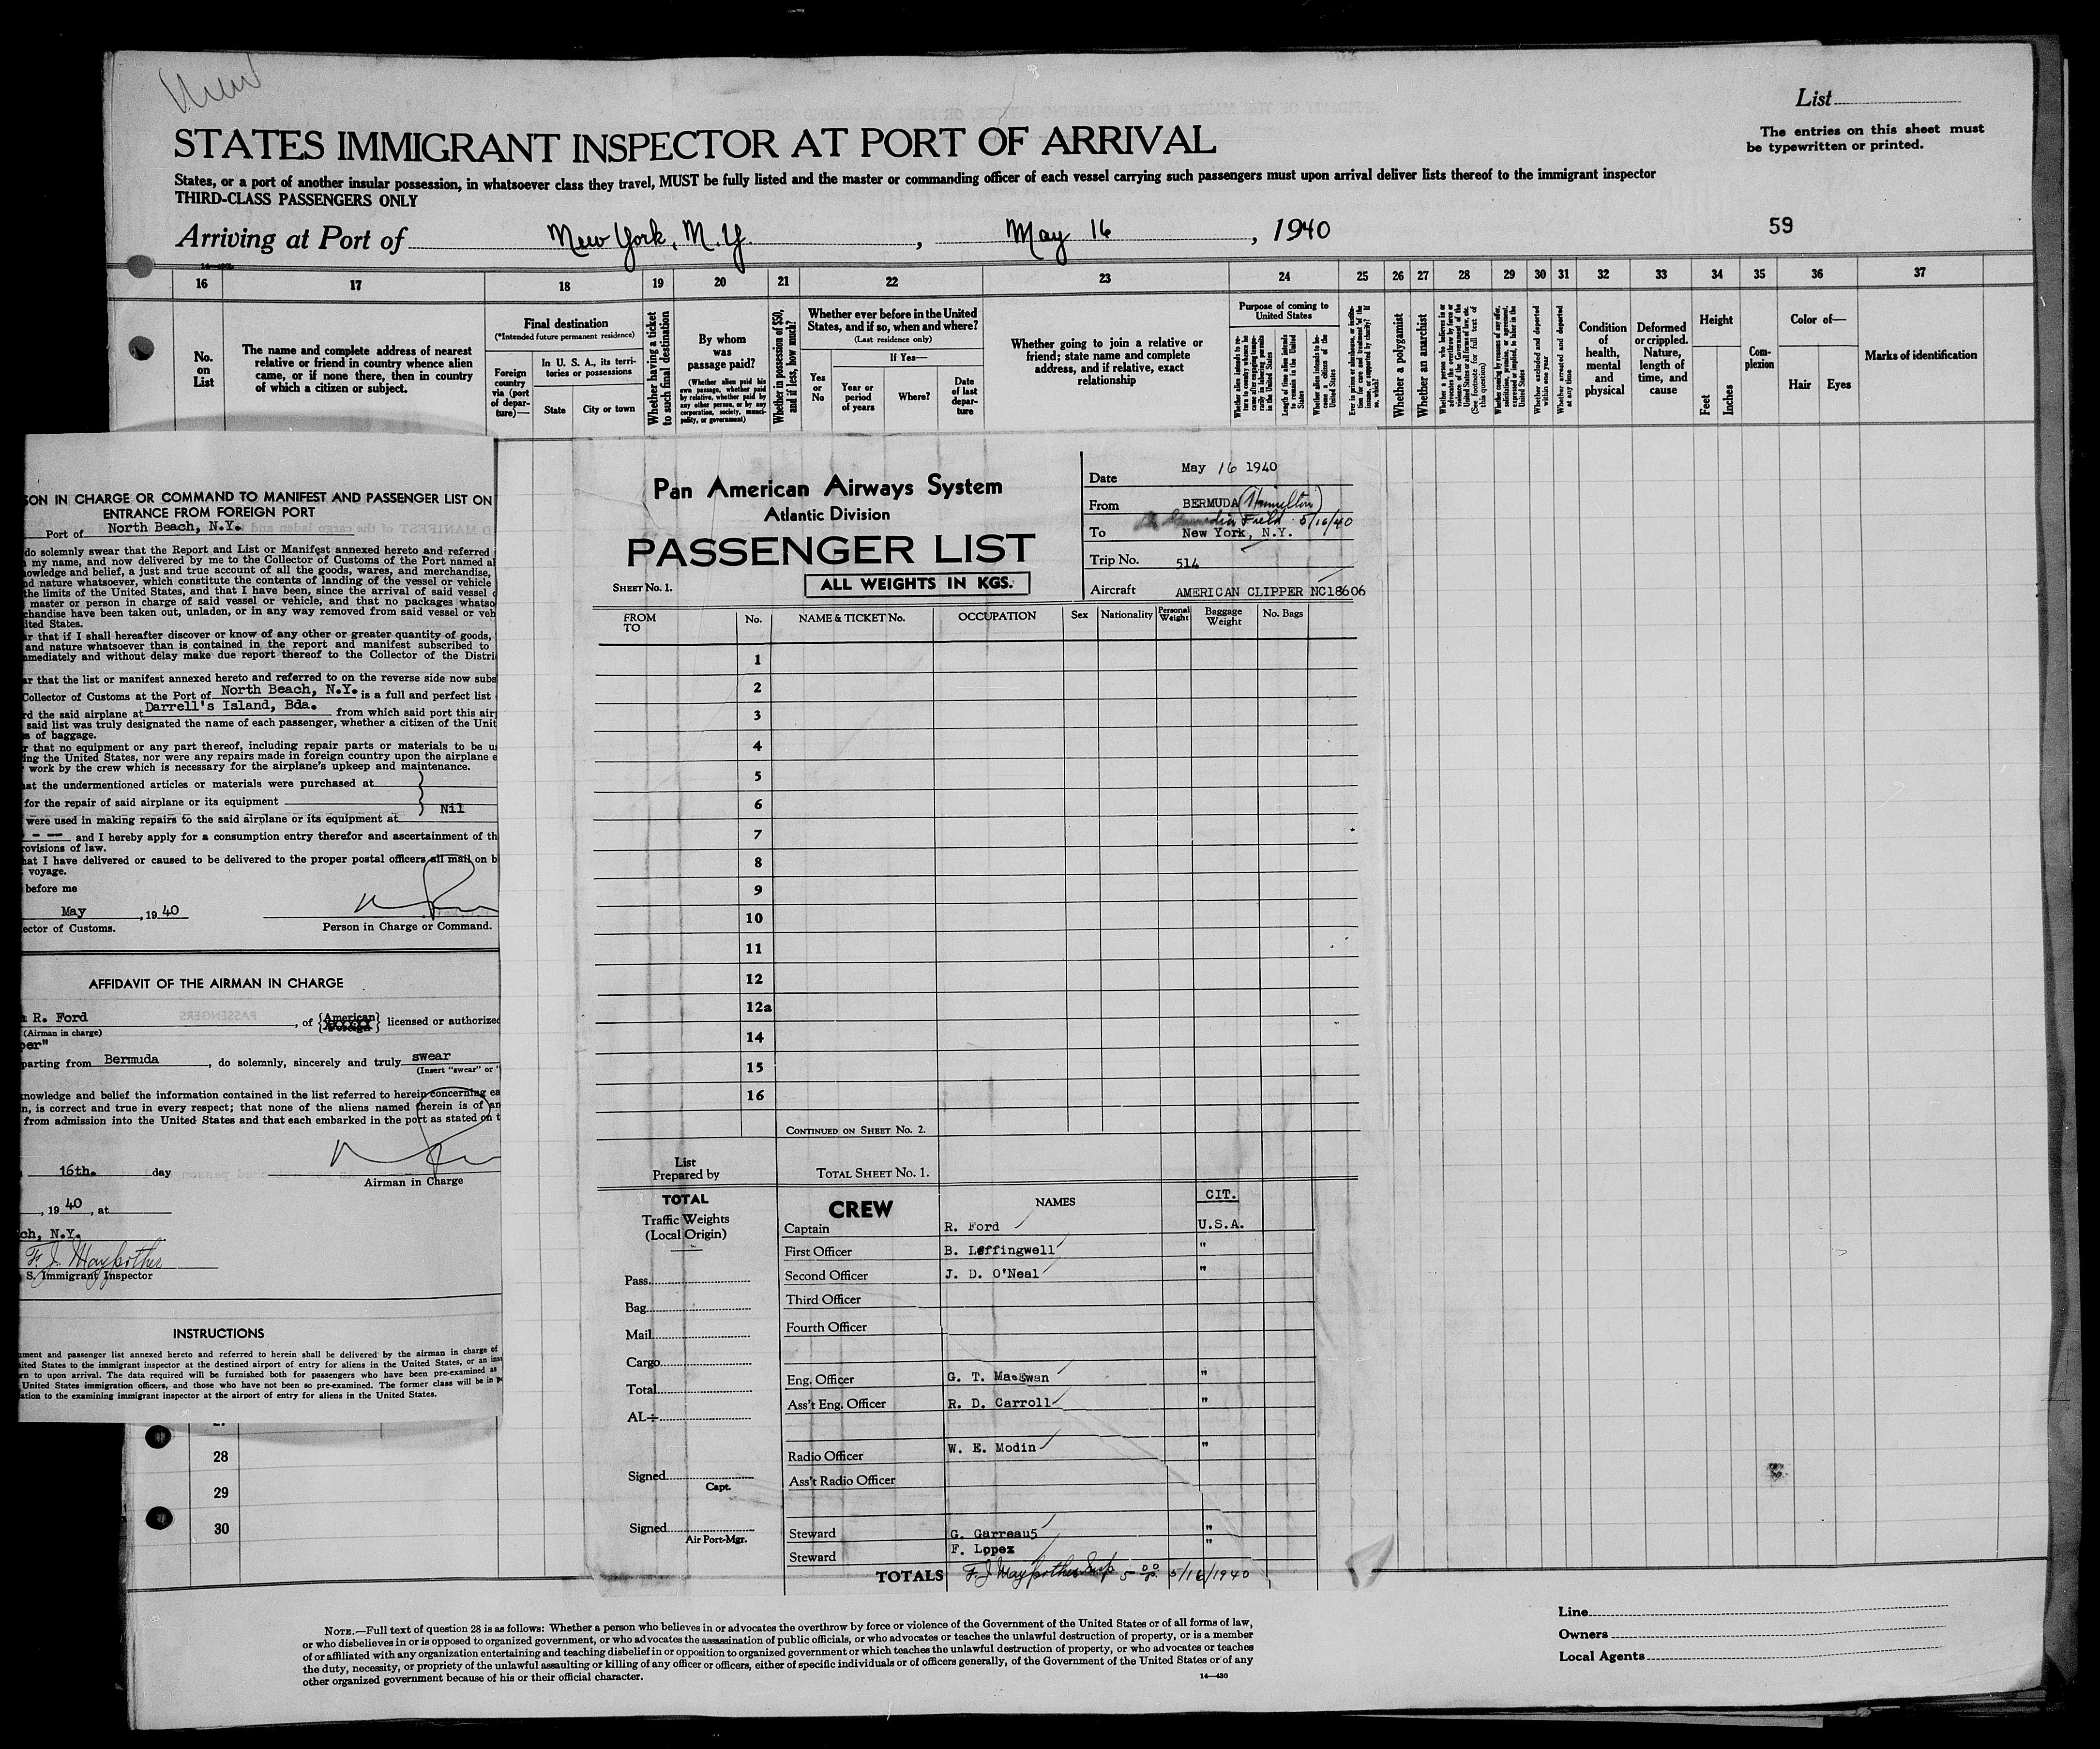 List
The entries on this sheet must
be typewritten or printed.
STATES IMMIGRANT INSPECTOR AT PORT OF ARRIVAL
States, or a port of another insular possession, in whatsoever class they travel, MUST be fully listed and the master or commanding officer of each vessel carrying such passengers must upon arrival deliver lists thereof to the immigrant inspector
THIRD-CLASS PASSENGERS ONLY
Arriving at Port of New York, N.Y. , May 16 , 1940
59
16 17 18 19 20 21 22 23 24 25 26 27 28 29 30 31 32 33 34 35 36 37
No.
on
List
The name and complete address of nearest
relative or friend in country whence alien
came, or if none there, then in country
of which a citizen or subject.
Final destination
(*Intended future permanent residence)
Foreign
country
via (port
of depar-
ture)—
In U. S. A., its terri-
tories or possessions
State
City or town
Whether having a ticket
to such final destination
By whom
was
passage paid?
(Whether alien paid his
own passage, whether paid
by relative, whether paid by
any other person, or by any
corporation, society, munici-
pality, or government)
Whether in possession of $50,
and if less, how much?
Whether ever before in the United
States, and if so, when and where?
(Last residence only)
If Yes—
Yes
or
No
Year or
period
of years
Where?
Date
of last
depar-
ture
Whether going to join a relative or
friend; state name and complete
address, and if relative, exact
relationship
Purpose of coming to
United States
Length of time alien intends
to remain in the United
States
Whether alien intends to be-
come a citizen of the
United States
Whether a polygamist
Whether an anarchist
(See footnote for full text of
this question)
Whether excluded and deported
within one year
Whether arrested and deported
at any time
Condition
of
health,
mental
and
physical
Deformed
or crippled.
Nature,
length of
time, and
cause
Height
Feet
Inches
Com-
plexion
Color of—
Hair
Eyes
Marks of identification
SON IN CHARGE OR COMMAND TO MANIFEST AND PASSENGER LIST ON
ENTRANCE FROM FOREIGN PORT
Port of North Beach, N.Y.
do solemnly swear that the Report and List or Manifest annexed hereto and referred
my name, and now delivered by me to the Collector of Customs of the Port named a
owledge and belief, a just and true account of all the goods, wares, and merchandise,
nd nature whatsoever, which constitute the contents of landing of the vessel or vehicle
the limits of the United States, and that I have been, since the arrival of said vessel
master or person in charge of said vessel or vehicle, and that no packages whatso
chandise have been taken out, unladen, or in any way removed from said vessel or veh
ited States.
ar that if I shall hereafter discover or know of any other or greater quantity of goods,
and nature whatsoever than is contained in the report and manifest subscribed to
mmediately and without delay make due report thereof to the Collector of the Distri
ar that the list or manifest annexed hereto and referred to on the reverse side now subs
Collector of Customs at the Port of North Beach, N.Y. is a full and perfect list
rd the said airplane at Darrell's Island, Bda. from which said port this air
said list was truly designated the name of each passenger, whether a citizen of the Unit
s of baggage.
r that no equipment or any part thereof, including repair parts or materials to be u
ing the United States, nor were any repairs made in foreign country upon the airplane e
work by the crew which is necessary for the airplane's upkeep and maintenance.
at the undermentioned articles or materials were purchased at
for the repair of said airplane or its equipment
Nil
were used in making repairs to the said airplane or its equipment at
and I hereby apply for a consumption entry therefor and ascertainment of th
rovisions of law.
hat I have delivered or caused to be delivered to the proper postal officers all mail on b
voyage.
before me
May , 1940
ector of Customs.
Person in Charge or Command.
AFFIDAVIT OF THE AIRMAN IN CHARGE
R. Ford , of {American} licensed or authorized
(Airman in charge)
per"
parting from Bermuda , do solemnly, sincerely and truly swear
(Insert "swear" or "
nowledge and belief the information contained in the list referred to herein concerning ea
n, is correct and true in every respect; that none of the aliens named therein is of an
from admission into the United States and that each embarked in the port as stated on t
16th. day
Airman in Charge
, 1940 , at
ch, N.Y.
F. J. Mayforther
S. Immigrant Inspector
INSTRUCTIONS
ment and passenger list annexed hereto and referred to herein shall be delivered by the airman in charge of
ited States to the immigrant inspector at the destined airport of entry for aliens in the United States, or an
rn to upon arrival. The data required will be furnished both for passengers who have been pre-examined as
United States immigration officers, and those who have not been so pre-examined. The former class will be in
ation to the examining immigrant inspector at the airport of entry for aliens in the United States.
28
29
30
Pan American Airways System
Atlantic Division
PASSENGER LIST
SHEET No. 1.
ALL WEIGHTS IN KGS.
Date May 16 1940
From BERMUDA (Hamilton)
Field 5/16/40
To New York, N.Y.
Trip No. 514
Aircraft AMERICAN CLIPPER NC18606
FROM
TO
No. NAME & TICKET No. OCCUPATION Sex Nationality Personal Weight Baggage Weight No. Bags
1
2
3
4
5
6
7
8
9
10
11
12
12a
14
15
16
CONTINUED ON SHEET No. 2.
List
Prepared by
TOTAL SHEET No. 1.
TOTAL
Traffic Weights
(Local Origin)
Pass.
Bag.
Mail
Cargo
Total
AL÷
Signed
Capt.
Signed
Air Port-Mgr.
CREW NAMES CIT.
Captain R. Ford U.S.A.
First Officer B. Leffingwell "
Second Officer J. D. O'Neal "
Third Officer
Fourth Officer
Eng. Officer G. T. MacEwan "
Ass't Eng. Officer R. D. Carroll "
Radio Officer W. E. Modin "
Ass't Radio Officer
Steward G. Garreau5 "
Steward F. Lopez "
TOTALS F. J. Mayforther Insp 5 00 P. 5/16/1940
NOTE.—Full text of question 28 is as follows: Whether a person who believes in or advocates the overthrow by force or violence of the Government of the United States or of all forms of law,
or who disbelieves in or is opposed to organized government, or who advocates the assassination of public officials, or who advocates or teaches the unlawful destruction of property, or is a member
of or affiliated with any organization entertaining and teaching disbelief in or opposition to organized government or which teaches the unlawful destruction of property, or who advocates or teaches
the duty, necessity, or propriety of the unlawful assaulting or killing of any officer or officers, either of specific individuals or of officers generally, of the Government of the United States or of any
other organized government because of his or their official character.
14—430
Line
Owners
Local Agents